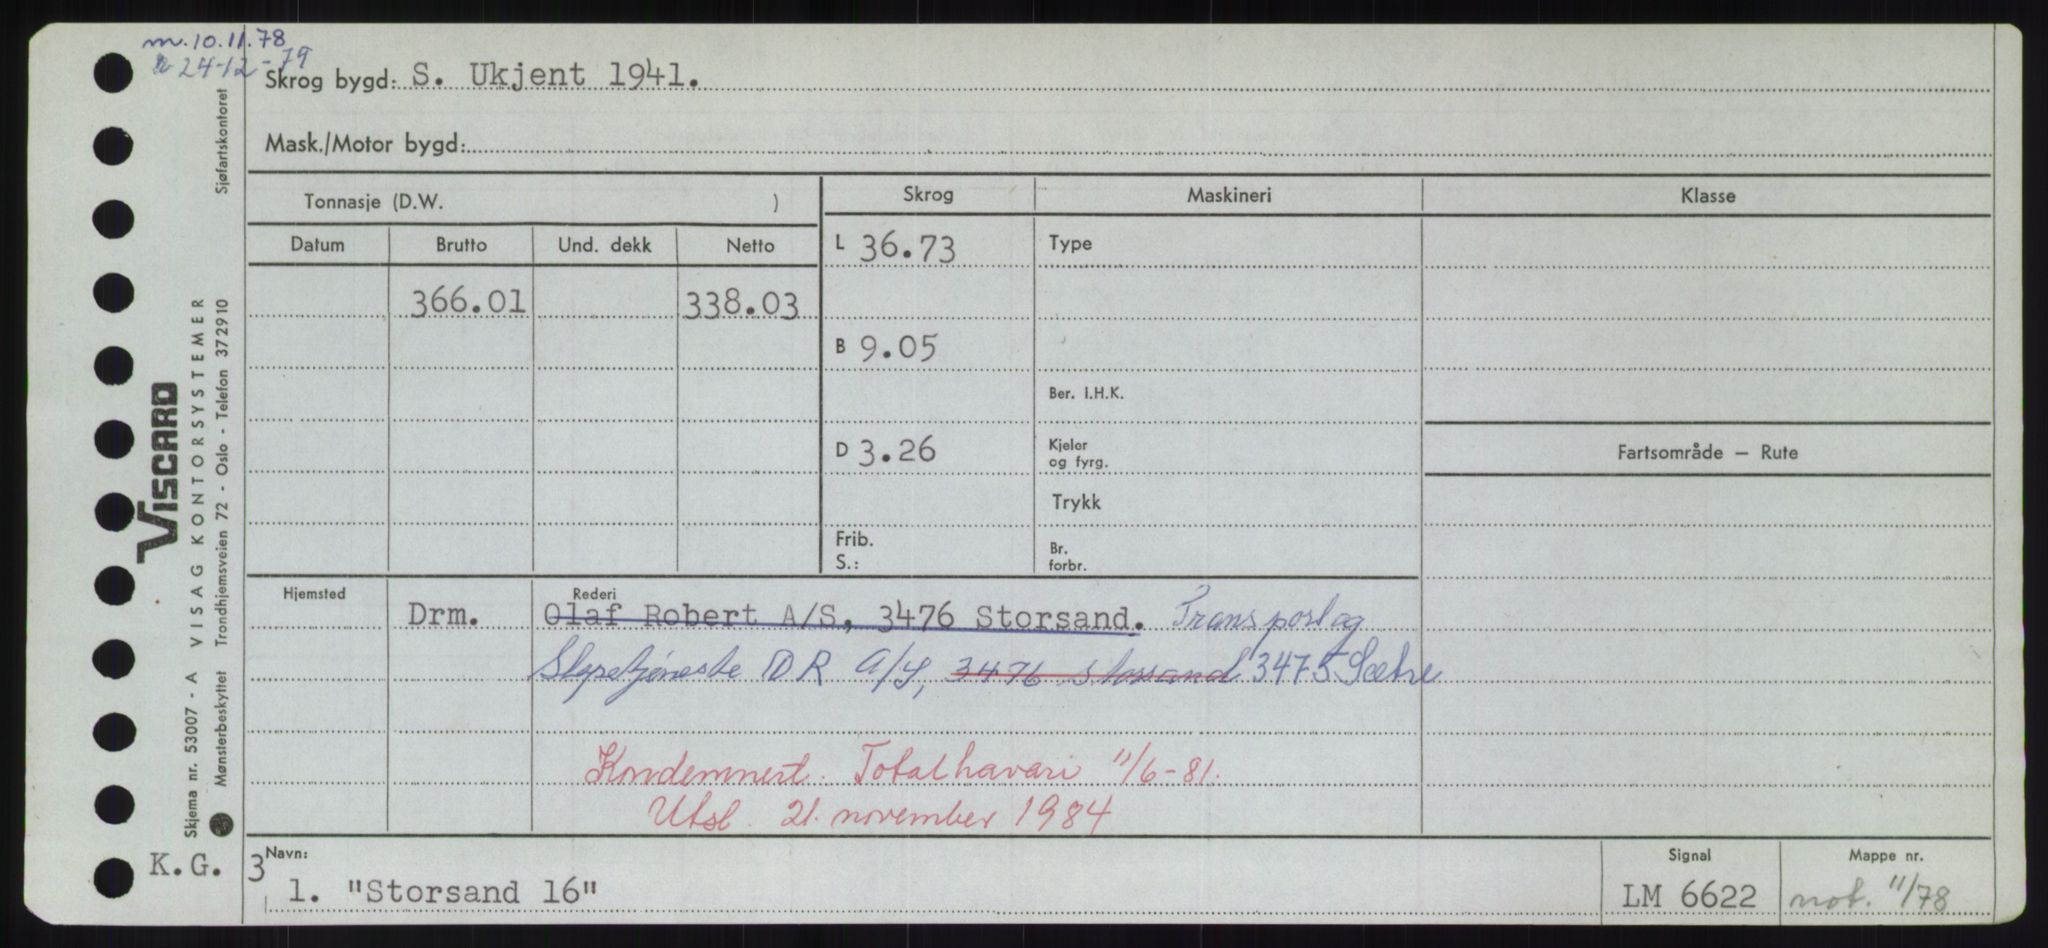 m. 10.11.78
24-12-79
Skrog bygd: S. Ukjent 1941.
Mask./Motor bygd:
Tonnasje (D.W. )
Skrog
Maskineri
Klasse
Datum
Brutto
Und. dekk
Netto
L 36.73
Type
366.01
338.03
B 9.05
Ber. I.H.K.
D 3.26
Kjeler
og fyrg.
Fartsområde – Rute
Trykk
Frib.
S.:
Br.
forbr.
Hjemsted
Rederi
Drm.
Olaf Robert A/S, 3476 Storsand. Transport og
Slepetjeneste DR A/S, 3476 Storsand 3475 Sætre
Kondemnert. Totalhavari 11/6-81.
Utsl. 21. november 1984
K.G.
3
Navn:
1. "Storsand 16"
Signal
LM 6622
Mappe nr.
not. 11/78
Sjøfartskontoret
VISCARD
Skjema nr. 53007 - A VISAG KONTORSYSTEMER
Mønsterbeskyttet Trondhjemsveien 72 - Oslo - Telefon 372910